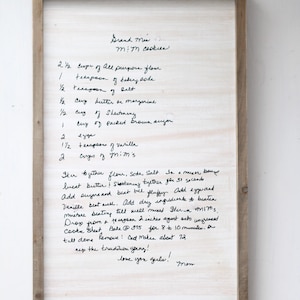 Grand Mes
M&M Cookies
2 ½ cups of All purpose flour
1 teaspoon of baking soda
½ teaspoon of Salt
½ cup butter or margarine
½ cup of Shortening
cup of packed brown sugar
2 eggs
1½ teaspoon of vanilla
2 cups of M&M's
Stir together flour, Soda, Salt. In a mixer Bowl
beat butter & Shortening together for 30 seconds
Add sugar and beat till fluffy. Add eggs and
Vanilla beat well. Add dry ingredients to
mixture beating till well mixed Stir in M&M's
Drop from a teaspoon 2 inches apart onto ungreased
Cookie Sheet. Bake @ 375 for 8 to 10 minutes or
till done Remove & Cool Makes about 72
keep the tradition going!
love you girls!
Mom